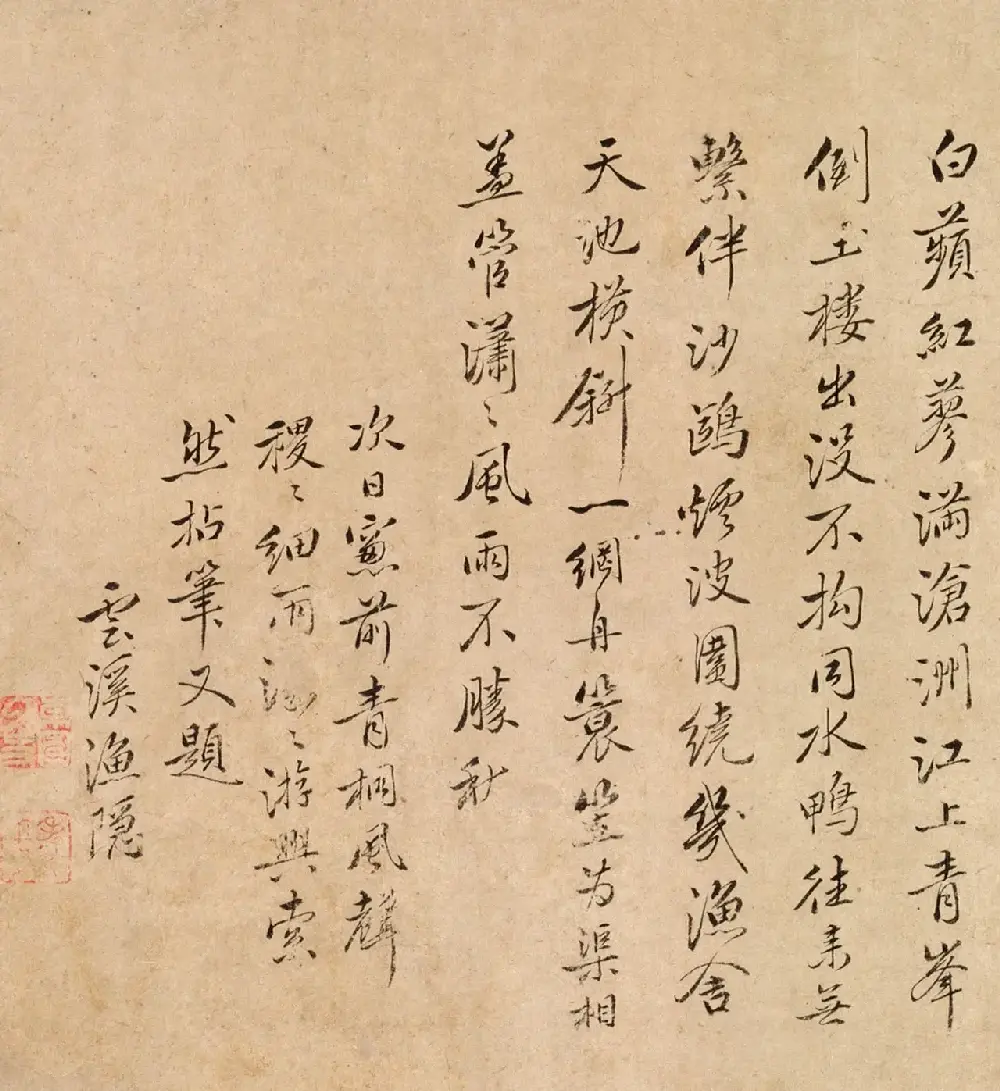 白蘋紅蓼滿滄洲江上青峯
倒玉楼出没不拘同水鴨往来無
繫伴沙鷗烟波圍繞幾漁舍
天池橫斜一網舟蓑笠为渠相
盖管瀟〻風雨不勝秋
次日窓前青桐風聲
稷〻細雨〻游興索
然拈筆又題
雲溪漁隱